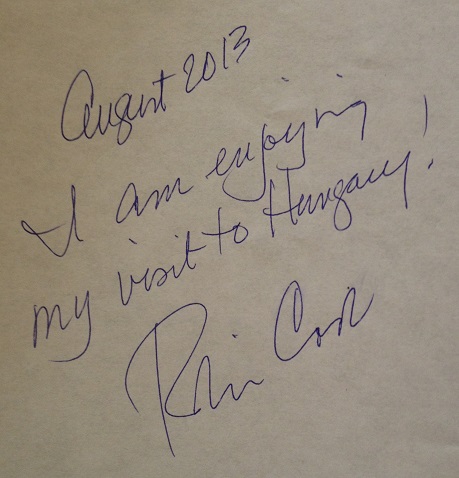 August 2013
I am enjoying
my visit to Hungary!
Robin Cook